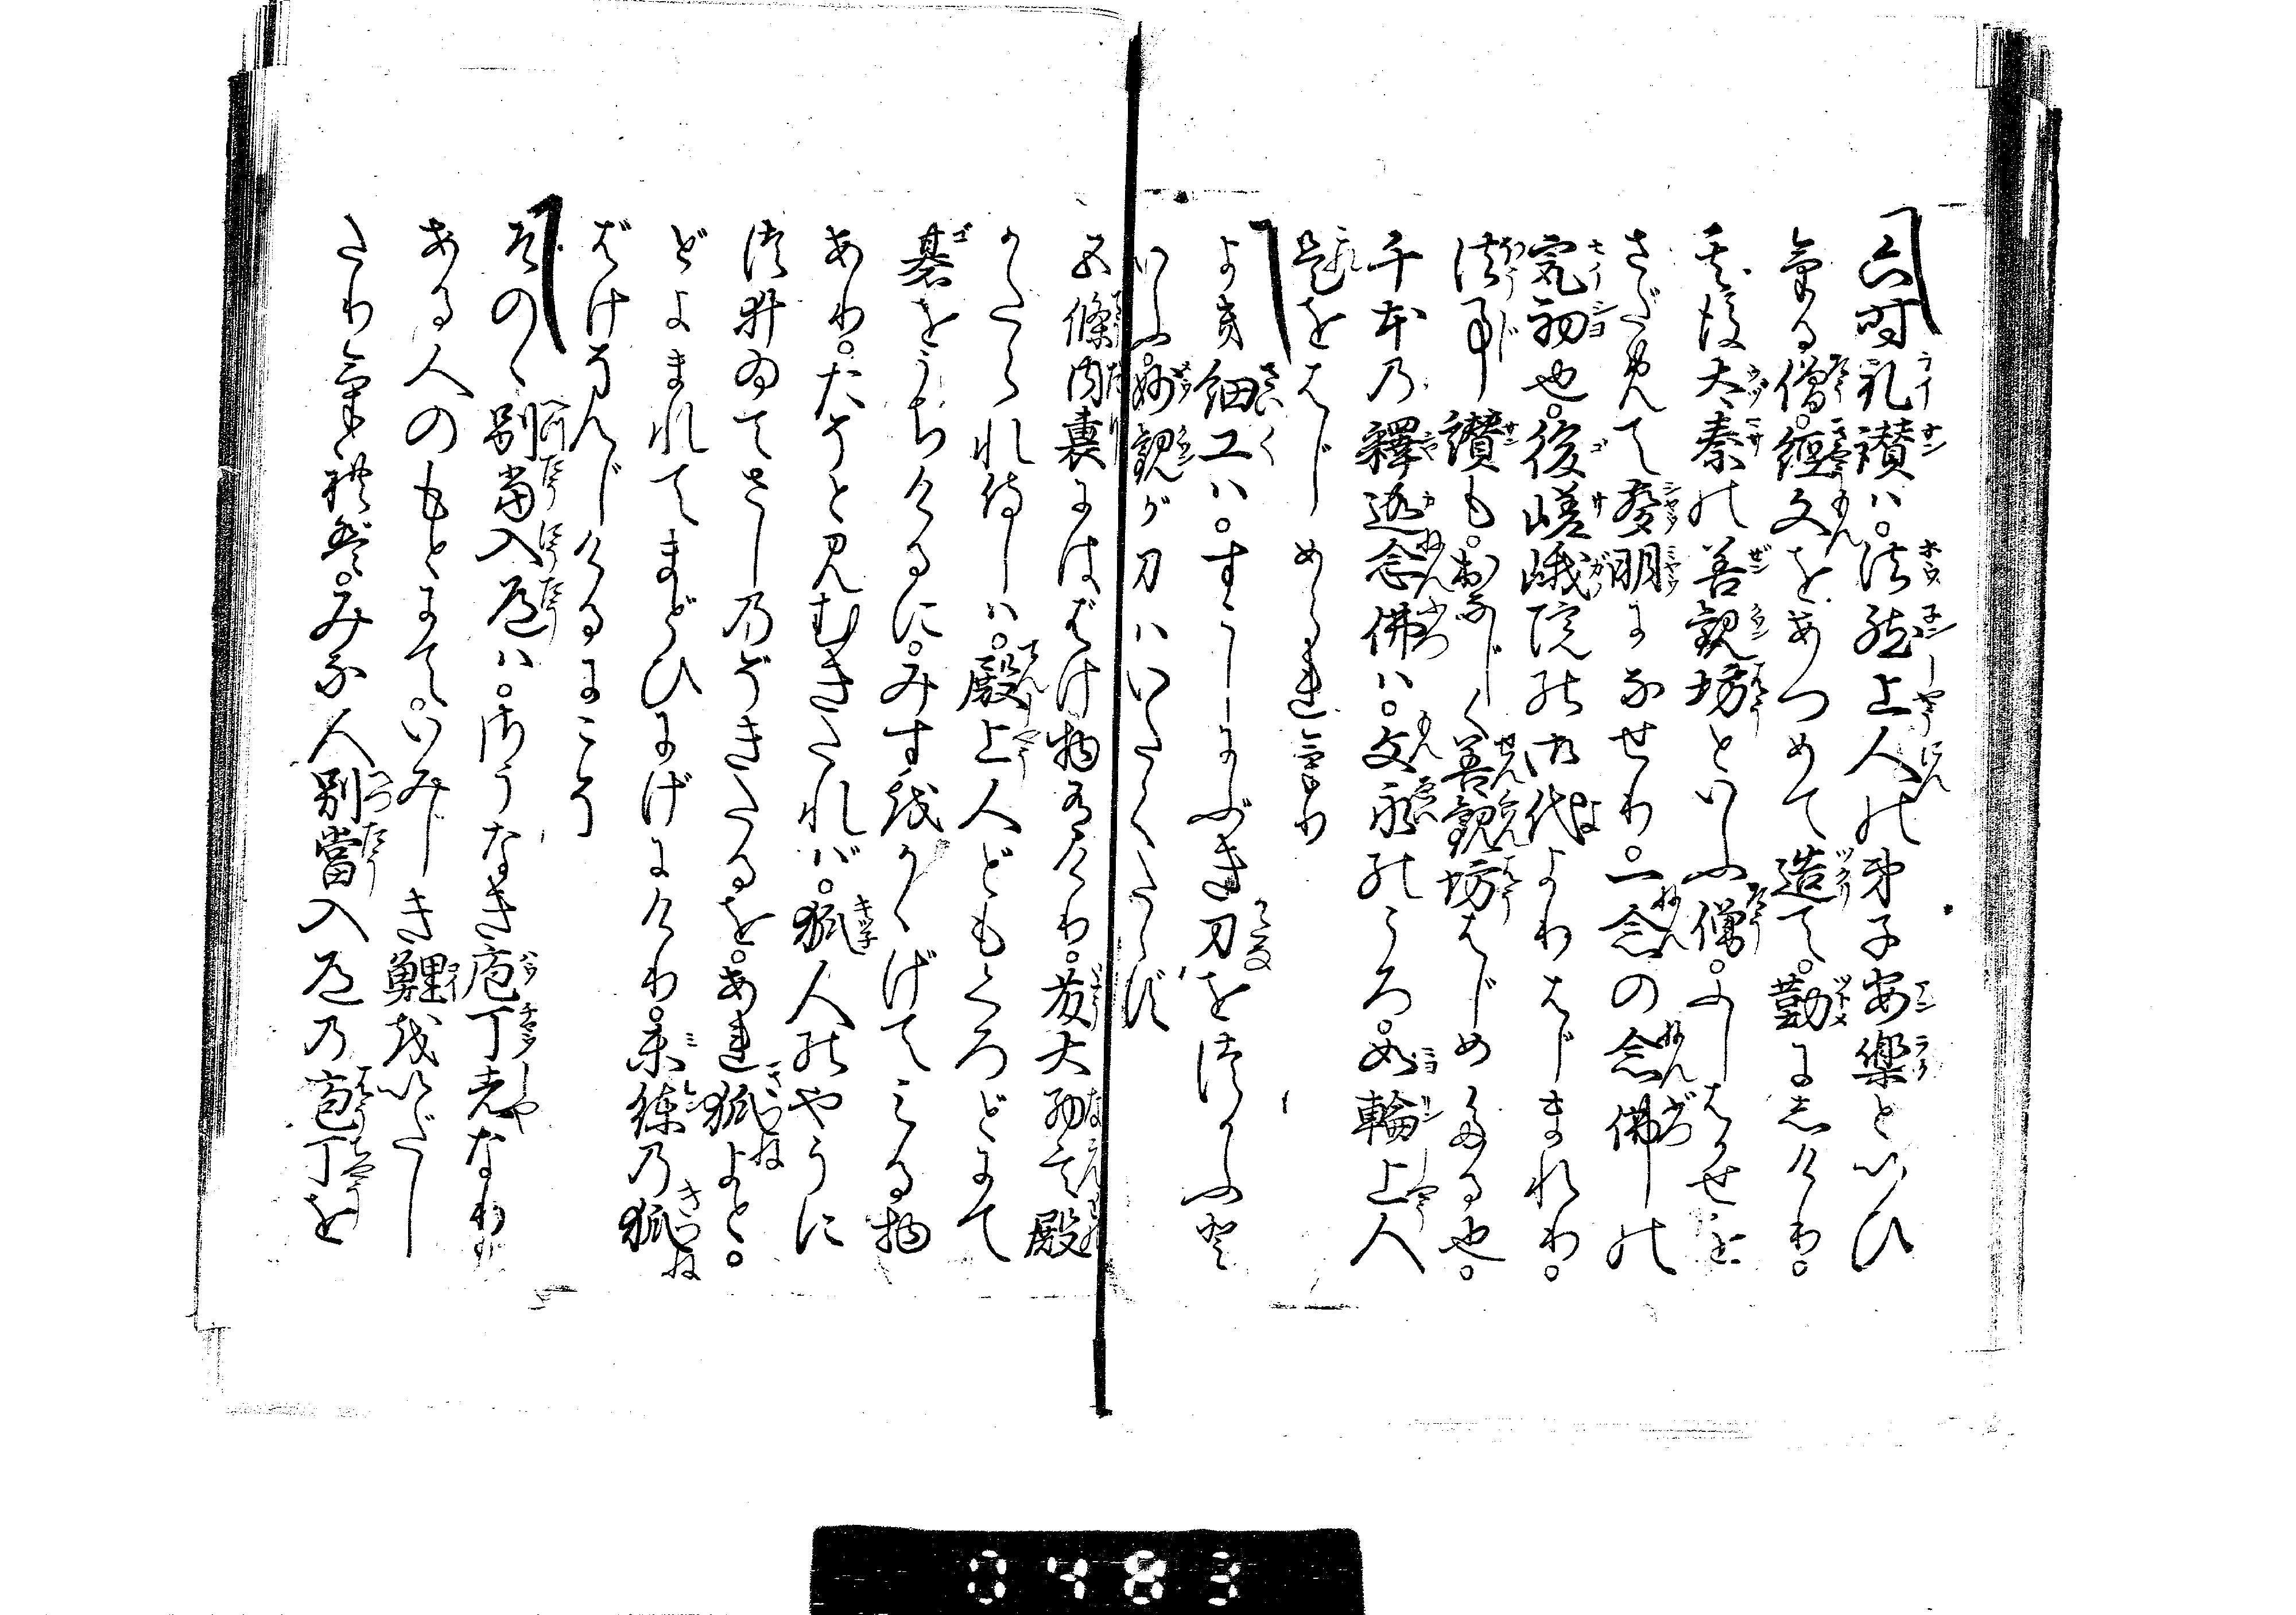 六時礼讃ハ。法然上人の弟子安楽といひ
ける僧。経文をあつめて造て。勤にしけり。
其後太秦の善観坊といふ僧。ふしはかせを
さだめて聲明になせり。一念の念佛の
最初也。後嵯峨院の御代よりはじまれり。
法事讃も。おなじく善観坊はじめたる也。
千本の釋迦念佛ハ。文永のころ。如輪上人
是をはじめられけり
よき細工ハ。すこしにぶき刀をつかふと
いふ。妙観が刀ハいたくたゝず
五條内裏にはばけ物有けり。藤大納言殿
かたられ侍しハ。殿上人ども黒どにて
碁をうちけるに。みすをかゝげてみる物
あり。たそと見むきたれバ。狐人のやうに
ついゐてさしのぞきたるを。あれ狐よと。
どよまれてまどひにげにけり。未練の狐
ばけそんじけるにこそ
そのゝ別当入道ハ。さうなき庖丁者なり
ある人のもとにて。いみじき鯉をいだし
たりければ。みな人別當入道の庖丁を
0483